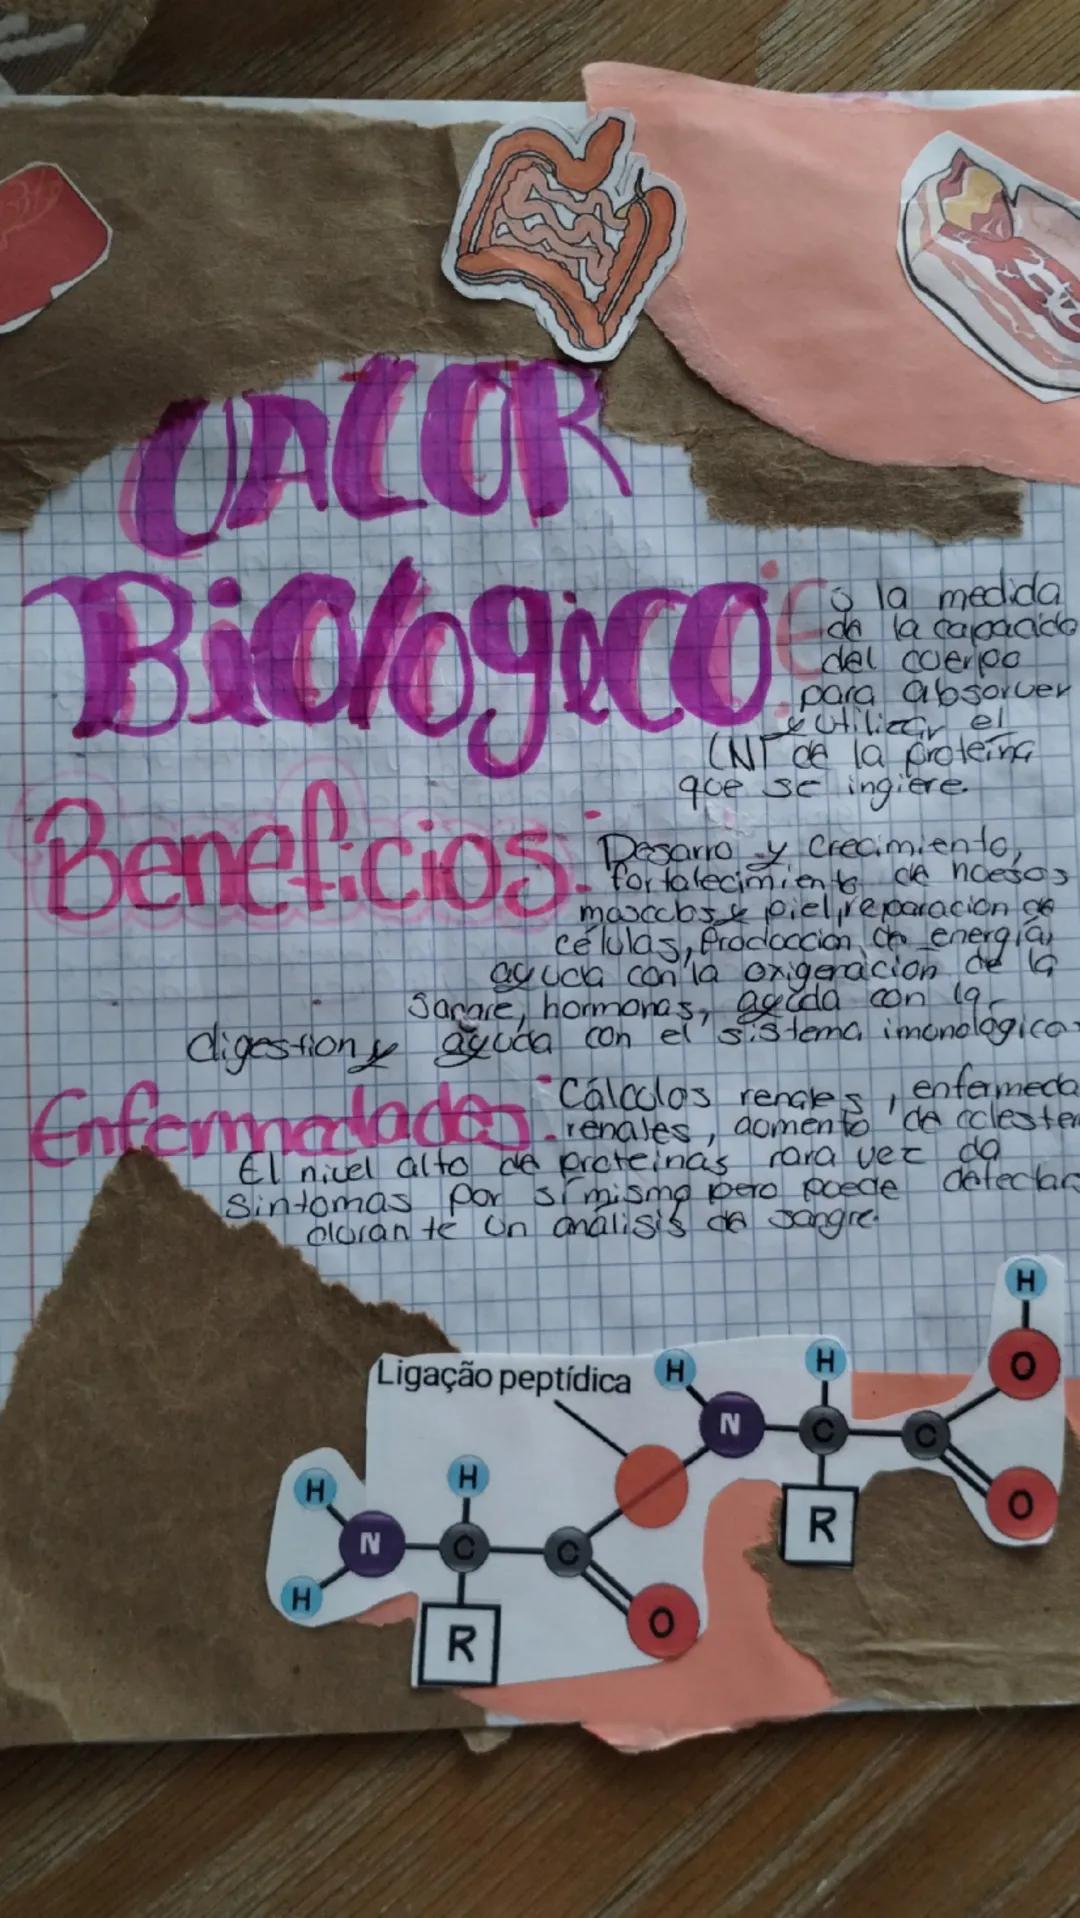 VALOR
Biologico:
Es la medida
de la capacida
del cuerpo
para absorver
y utilizar el
(N) de la proteina
que se ingiere.
Beneficios:
Desarro y crecimiento,
fortalecimiento de huesos
musculos y piel, reparacion de
células, Producción de energía,
ayuda con la oxigenacion de la
Sangre, hormonas, ayuda con la
digestion y ayuda con el sistema imonológico
Enfermedades:
Cálculos renales, enfermeda
renales, aomento de colester
El nivel alto de proteinas rara vez da
sintomas por sí mismo pero puede detectars
duran te un análisis de sangre.
Ligação peptídica
H
H
H
O
N
C
C
O
R
H
H
N
C
C
H
R
O